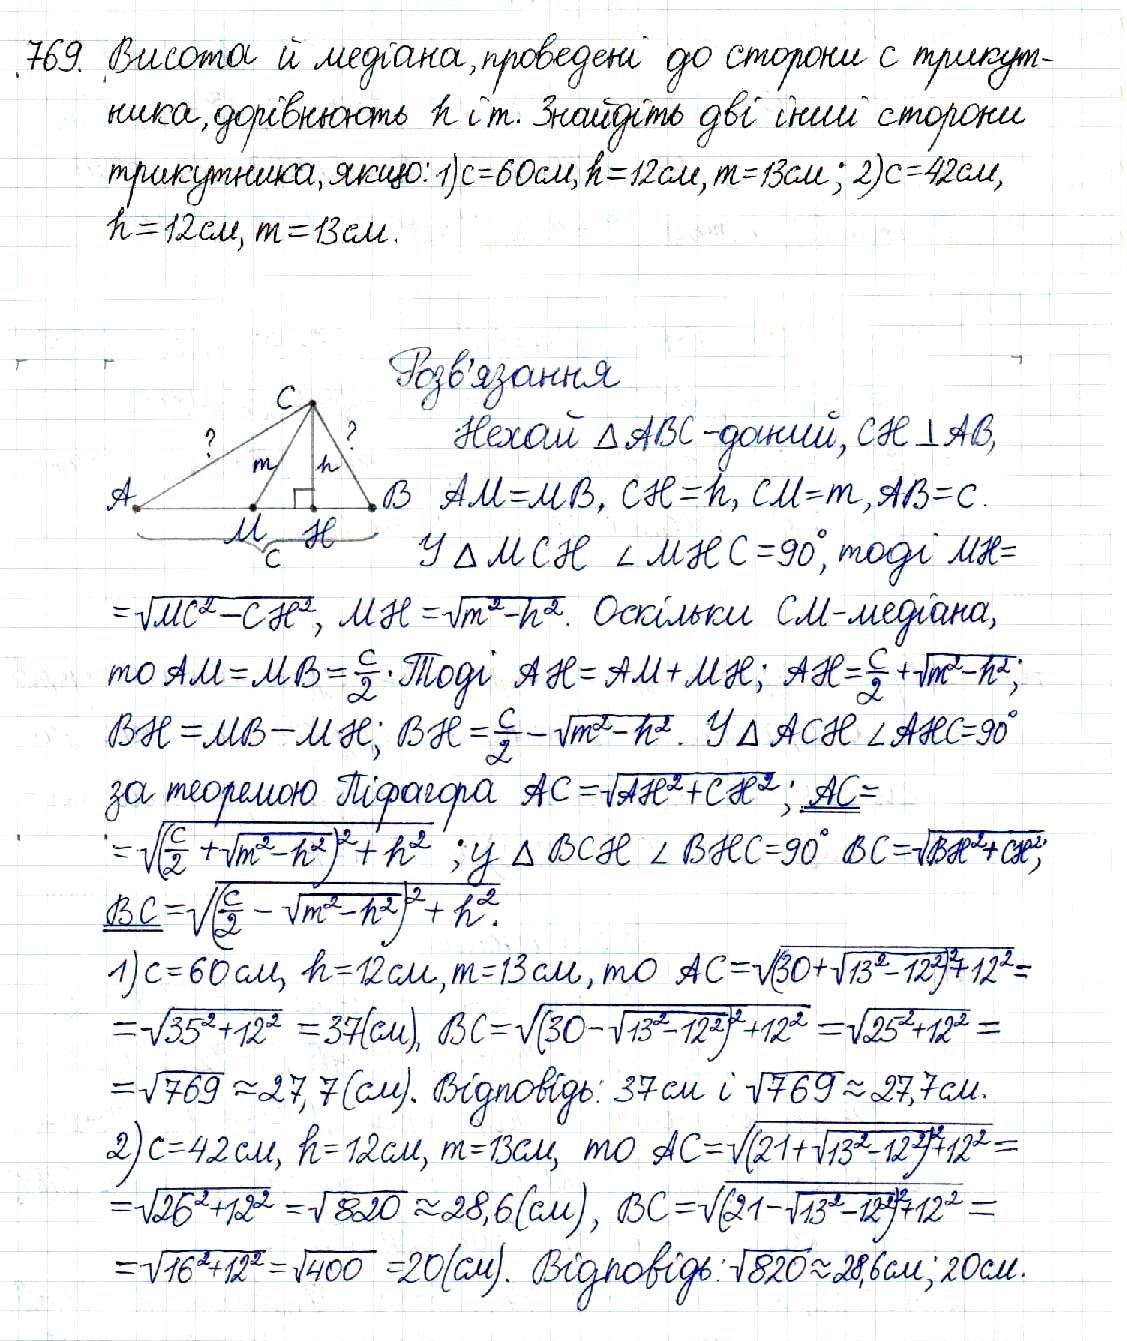 769. Висота й медіана, проведені до сторони c трикут-
ника, дорівнюють h і m. Знайдіть дві інші сторони
трикутника, якщо: 1) c=60см, h=12см, m=13см; 2) c=42см,
h=12см, m=13см.
Розв'язання
C
? ?
m h
A B
M H
c
Нехай △ABC-даний, CH⊥AB,
AM=MB, CH=h, CM=m, AB=c.
У △MCH ∠MHC=90°, тоді MH=
=√(MC²-CH²), MH=√(m²-h²). Оскільки CM-медіана,
то AM=MB=c/2. Тоді AH=AM+MH; AH=c/2+√(m²-h²);
BH=MB-MH; BH=c/2-√(m²-h²). У △ACH ∠AHC=90°
за теоремою Піфагора AC=√(AH²+CH²); AC=
=√((c/2+√(m²-h²))²+h²); у △BCH ∠BHC=90° BC=√(BH²+CH²);
BC=√((c/2-√(m²-h²))²+h²).
1) c=60см, h=12см, m=13см, то AC=√((30+√(13²-12²))²+12²)=
=√(35²+12²)=37(см), BC=√((30-√(13²-12²))²+12²)=√(25²+12²)=
=√769≈27,7(см). Відповідь: 37см і √769≈27,7см.
2) c=42см, h=12см, m=13см, то AC=√((21+√(13²-12²))²+12²)=
=√(26²+12²)=√820≈28,6(см), BC=√((21-√(13²-12²))²+12²)=
=√(16²+12²)=√400=20(см). Відповідь: √820≈28,6см; 20см.